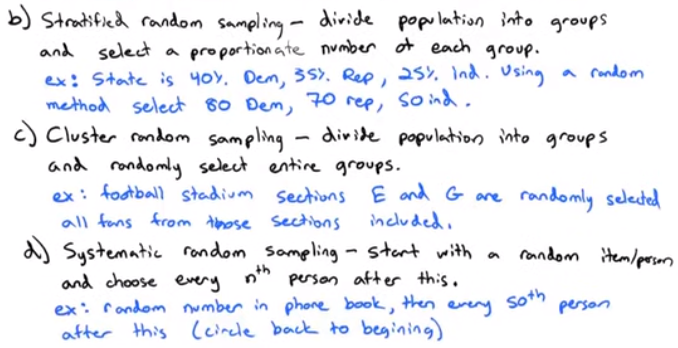 b) Stratified random sampling – divide population into groups
and select a proportionate number of each group.
ex: State is 40%. Dem, 35%. Rep, 25%. Ind. Using a random
method select 80 Dem, 70 rep, 50 ind.
c) Cluster random sampling – divide population into groups
and randomly select entire groups.
ex: football stadium sections E and G are randomly selected
all fans from those sections included.
d) Systematic random sampling – start with a random item/person
and choose every nth person after this.
ex: random number in phone book, then every 50th person
after this (circle back to begining)